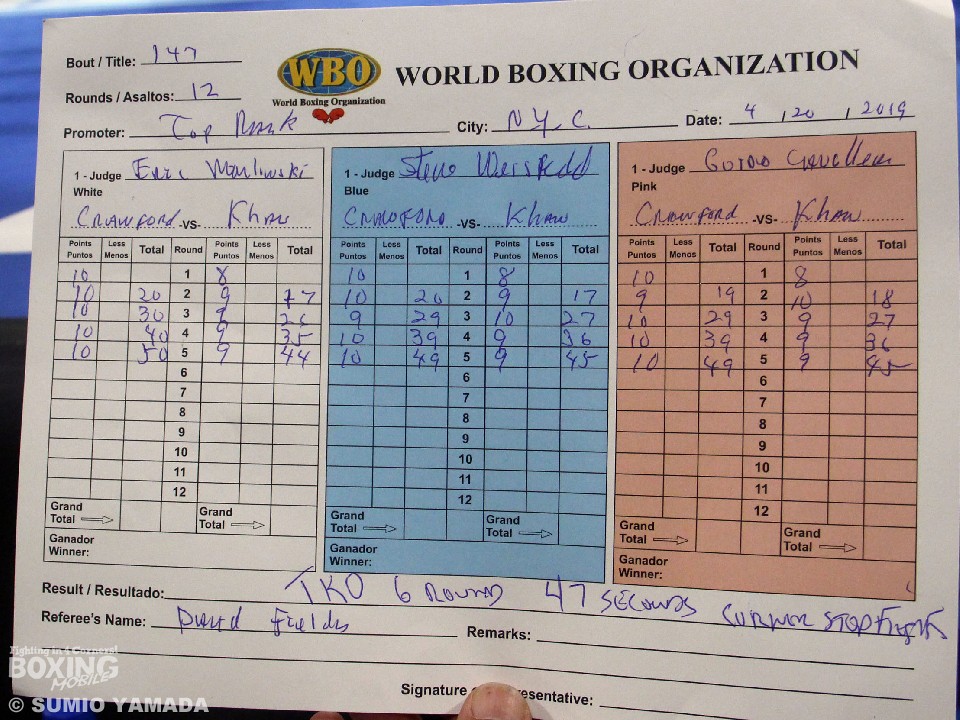 Bout / Title: 147
WBO
World Boxing Organization
WORLD BOXING ORGANIZATION
Rounds / Asaltos: 12
Promoter: Top Rank City: N.Y.C. Date: 4 / 20 / 2019
1 - Judge Eric Marlinski
White
Crawford -VS- Khan
Points Puntos Less Menos Total Round Points Puntos Less Menos Total
10 1 8
10 20 2 9 17
10 30 3 9 26
10 40 4 9 35
10 50 5 9 44
6
7
8
9
10
11
12
Grand Total Grand Total
Ganador
Winner:
1 - Judge Steve Weisfeld
Blue
Crawford -VS- Khan
Points Puntos Less Menos Total Round Points Puntos Less Menos Total
10 1 8
10 20 2 9 17
9 29 3 10 27
10 39 4 9 36
10 49 5 9 45
6
7
8
9
10
11
12
Grand Total Grand Total
Ganador
Winner:
1 - Judge
Pink
Crawford -VS- Khan
Points Puntos Less Menos Total Round Points Puntos Less Menos Total
10 1 8
9 19 2 10 18
10 29 3 9 27
10 39 4 9 36
10 49 5 9 45
6
7
8
9
10
11
12
Grand Total Grand Total
Ganador
Winner:
Result / Resultado: TKO 6 ROUND 47 SECONDS CORNER STOP FIGHT
Referee's Name: David Fields Remarks:
Signature presentative:
Fighting in 4 Corners!
BOXING
MOBILE
© SUMIO YAMADA